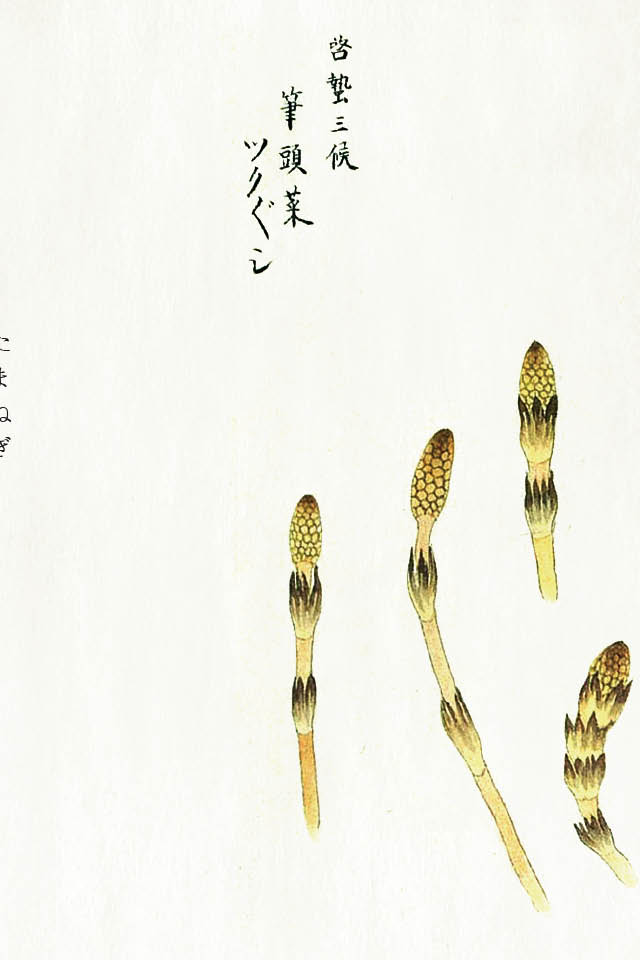 啓蟄三候
筆頭菜
ツクぐシ
たまねぎ